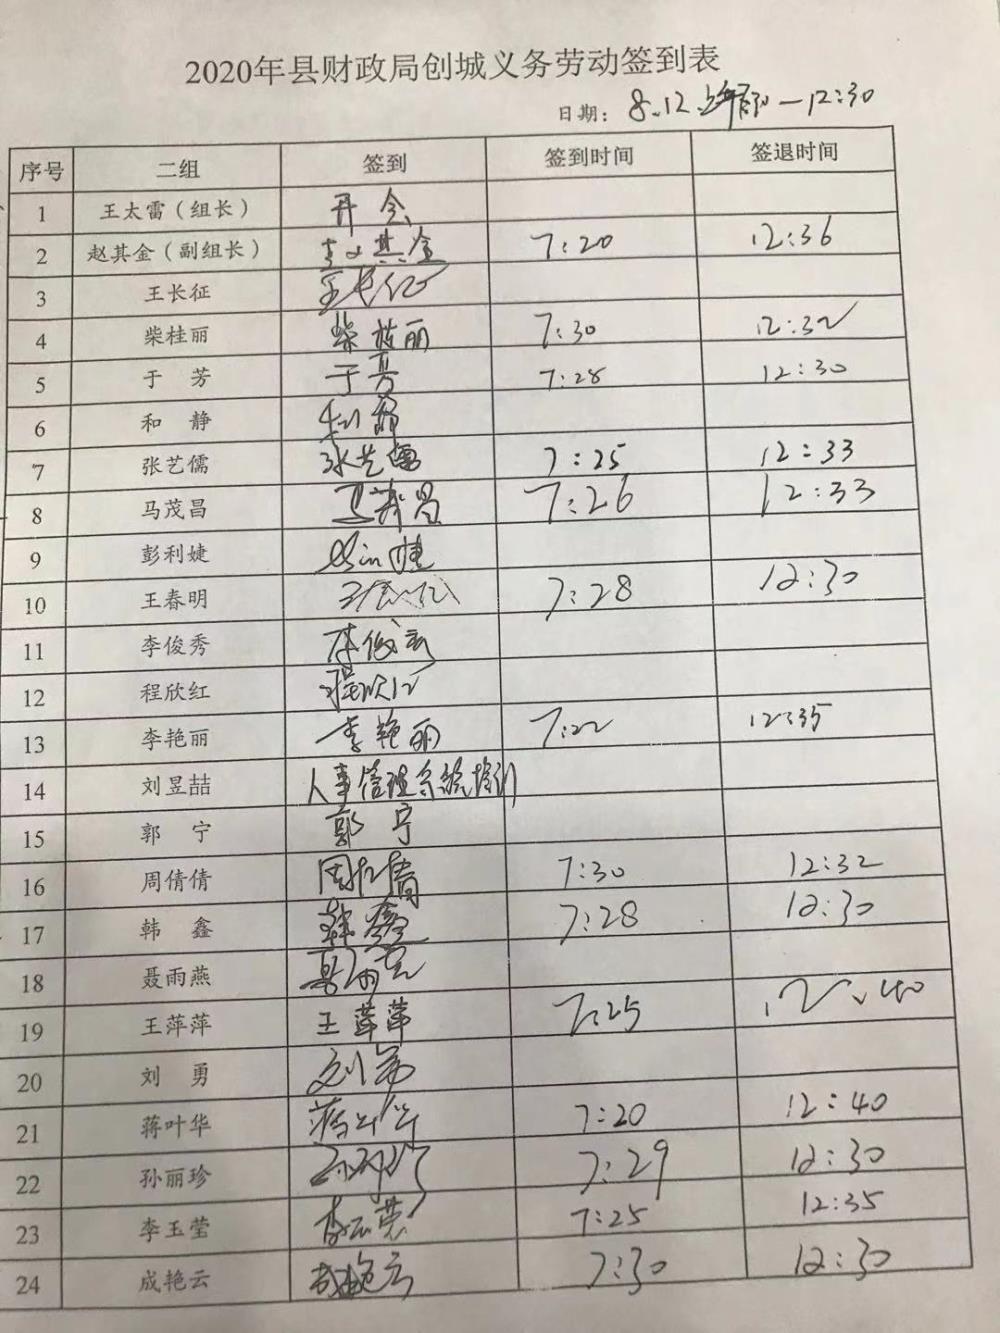 2020年县财政局创城义务劳动签到表
日期: 8.12 上午 —12:30
序号 二组 签到 签到时间 签退时间
1 王太雷（组长） 开会
2 赵其金（副组长） 赵其金 7:20 12:36
3 王长征 王长征
4 柴桂丽 柴桂丽 7:30 12:32
5 于 芳 于芳 7:28 12:30
6 和 静 和静
7 张艺儒 张艺儒 7:25 12:33
8 马茂昌 马茂昌 7:26 12:33
9 彭利婕
10 王春明 王春明 7:28 12:30
11 李俊秀 李俊秀
12 程欣红 程欣红
13 李艳丽 李艳丽 7:22 12:35
14 刘昱喆 人事管理系统培训
15 郭 宁 郭宁
16 周倩倩 周倩倩 7:30 12:32
17 韩 鑫 韩鑫 7:28 12:30
18 聂雨燕 聂雨燕
19 王萍萍 王萍萍 7:25 12:40
20 刘 勇 刘勇
21 蒋叶华 蒋叶华 7:20 12:40
22 孙丽珍 孙丽珍 7:29 12:30
23 李玉莹 李玉莹 7:25 12:35
24 成艳云 成艳云 7:30 12:30